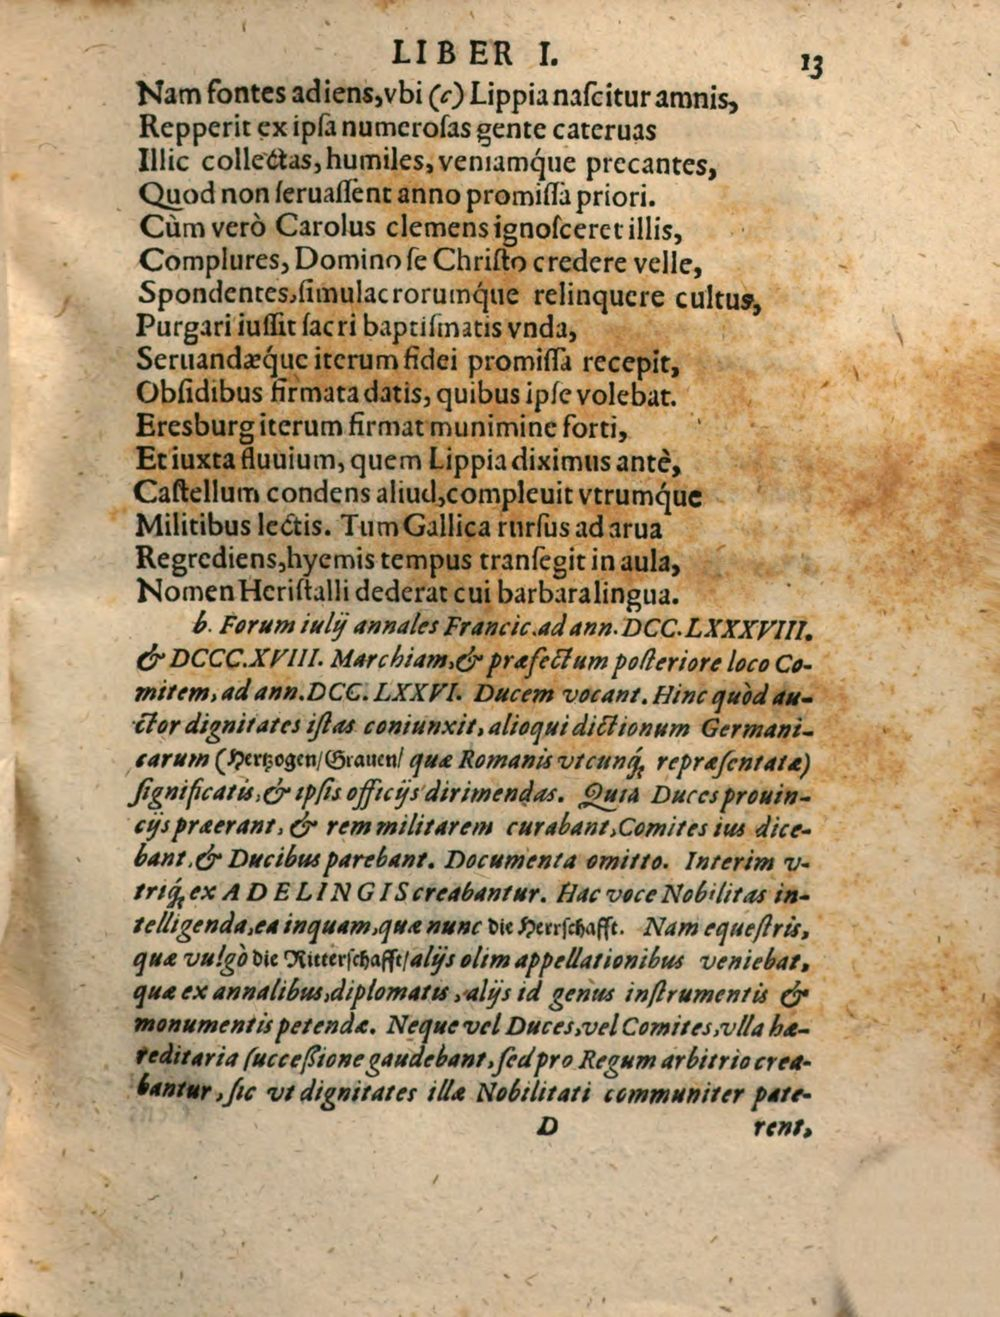 LIBER I. 13
Nam fontes adiens, vbi (c) Lippia naſcitur amnis,
Repperit ex ipſa numeroſas gente cateruas
Illic collectas, humiles, veniamq́ue precantes,
Quod non ſeruaſſent anno promiſſa priori.
Cùm verò Carolus clemens ignoſceret illis,
Complures, Domino ſe Chriſto credere velle,
Spondentes, ſimulacrorumq́ue relinquere cultus,
Purgari iuſſit ſacri baptiſmatis vnda,
Seruandæq́ue iterum fidei promiſſa recepit,
Obſidibus firmata datis, quibus ipſe volebat.
Eresburg iterum firmat munimine forti,
Et iuxta fluuium, quem Lippia diximus antè,
Caſtellum condens aliud, compleuit vtrumq́ue
Militibus lectis. Tum Gallica rurſus ad arua
Regrediens, hyemis tempus tranſegit in aula,
Nomen Heriſtalli dederat cui barbara lingua.
b. Forum iulij annales Francic. ad ann. DCC. LXXXVIII.
& DCCC. XVIII. Marchiam, & præfectum poſteriore loco Co-
mitem, ad ann. DCC. LXXVI. Ducem vocant. Hinc quòd au-
ctor dignitates iſtas coniunxit, alioqui dictionum Germani-
carum (Hertzogen/Grauen/ quæ Romanis vtcunq́; repræſentatæ)
ſignificatis, & ipſis officijs dirimendas. Quia Duces prouin-
cijs præerant, & rem militarem curabant, Comites ius dice-
bant, & Ducibus parebant. Documenta omitto. Interim v-
triq́; ex ADELINGIS creabantur. Hac voce Nobilitas in-
telligenda, ea inquam, quæ nunc die Herrſchafft. Nam equeſtris,
quæ vulgò die Ritterſchafft/ alijs olim appellationibus veniebat,
quæ ex annalibus, diplomatis, alijs id genus inſtrumentis &
monumentis petendæ. Neque vel Duces, vel Comites, vlla hæ-
reditaria ſucceßione gaudebant, ſed pro Regum arbitrio crea-
bantur, ſic vt dignitates illæ Nobilitati communiter pate-
D rent,